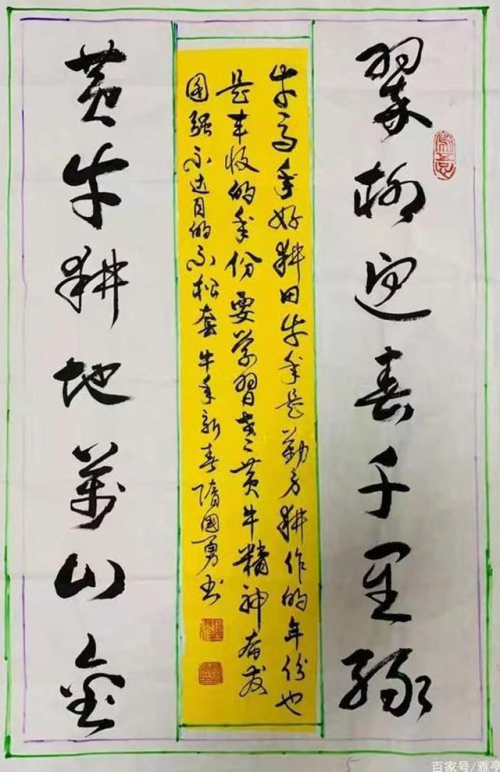 翠柳迎春千里绿
牛马年好耕田牛年是勤劳耕作的年份也
是丰收的年份要学习老黄牛精神奋发
图强不达目的不松套牛年新春隋國勇书
黄牛耕地萬山金
百家号/雅亭